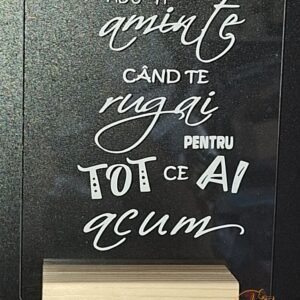 aminte
CÂND TE
rugai
PENTRU
TOT CE AI
acum